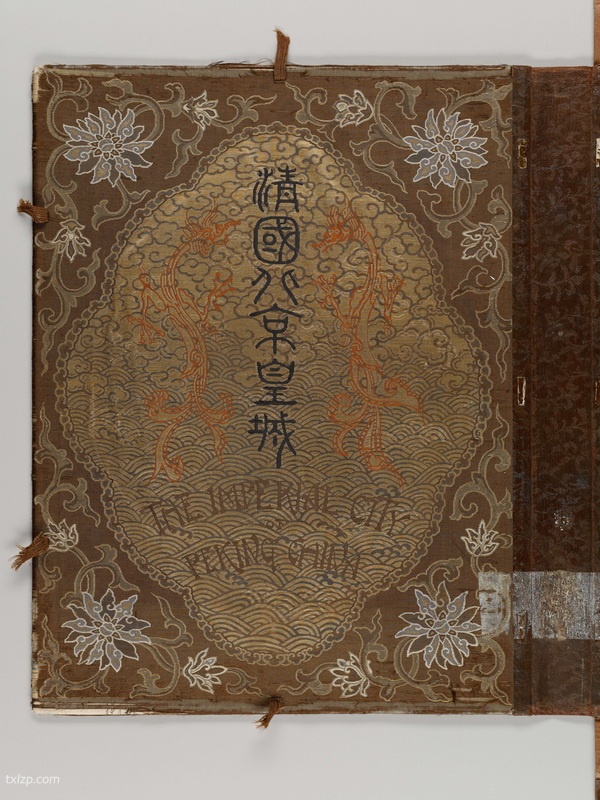 清國北京皇城
THE IMPERIAL CITY
OF
PEKING CHINA
txlzp.com